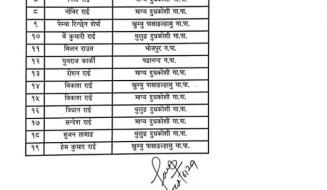 ८ नोबिर राई माप्य दुधकोशी गा.पा.
९ पेम्बा रिन्छेन शेर्पा खुम्बु पासाङल्हामु गा.पा.
१० बे कुमारी राई थुलुङ दुधकोशी गा.पा.
११ मिलन राउत भोजपुर न.पा.
१२ युवराज कार्की षडानन्द न.पा.
१३ रोशन राई माप्य दुधकोशी गा.पा.
१४ बिकाश राई खुम्बु पासाङल्हामु गा.पा.
१५ बिकाश राई माप्य दुधकोशी गा.पा.
१६ विधान राई थुलुङ दुधकोशी गा.पा.
१७ सन्देश राई माप्य दुधकोशी गा.पा.
१८ सुजन तामाङ थुलुङ दुधकोशी गा.पा.
१९ हेम कुमार राई खुम्बु पासाङल्हामु गा.पा.